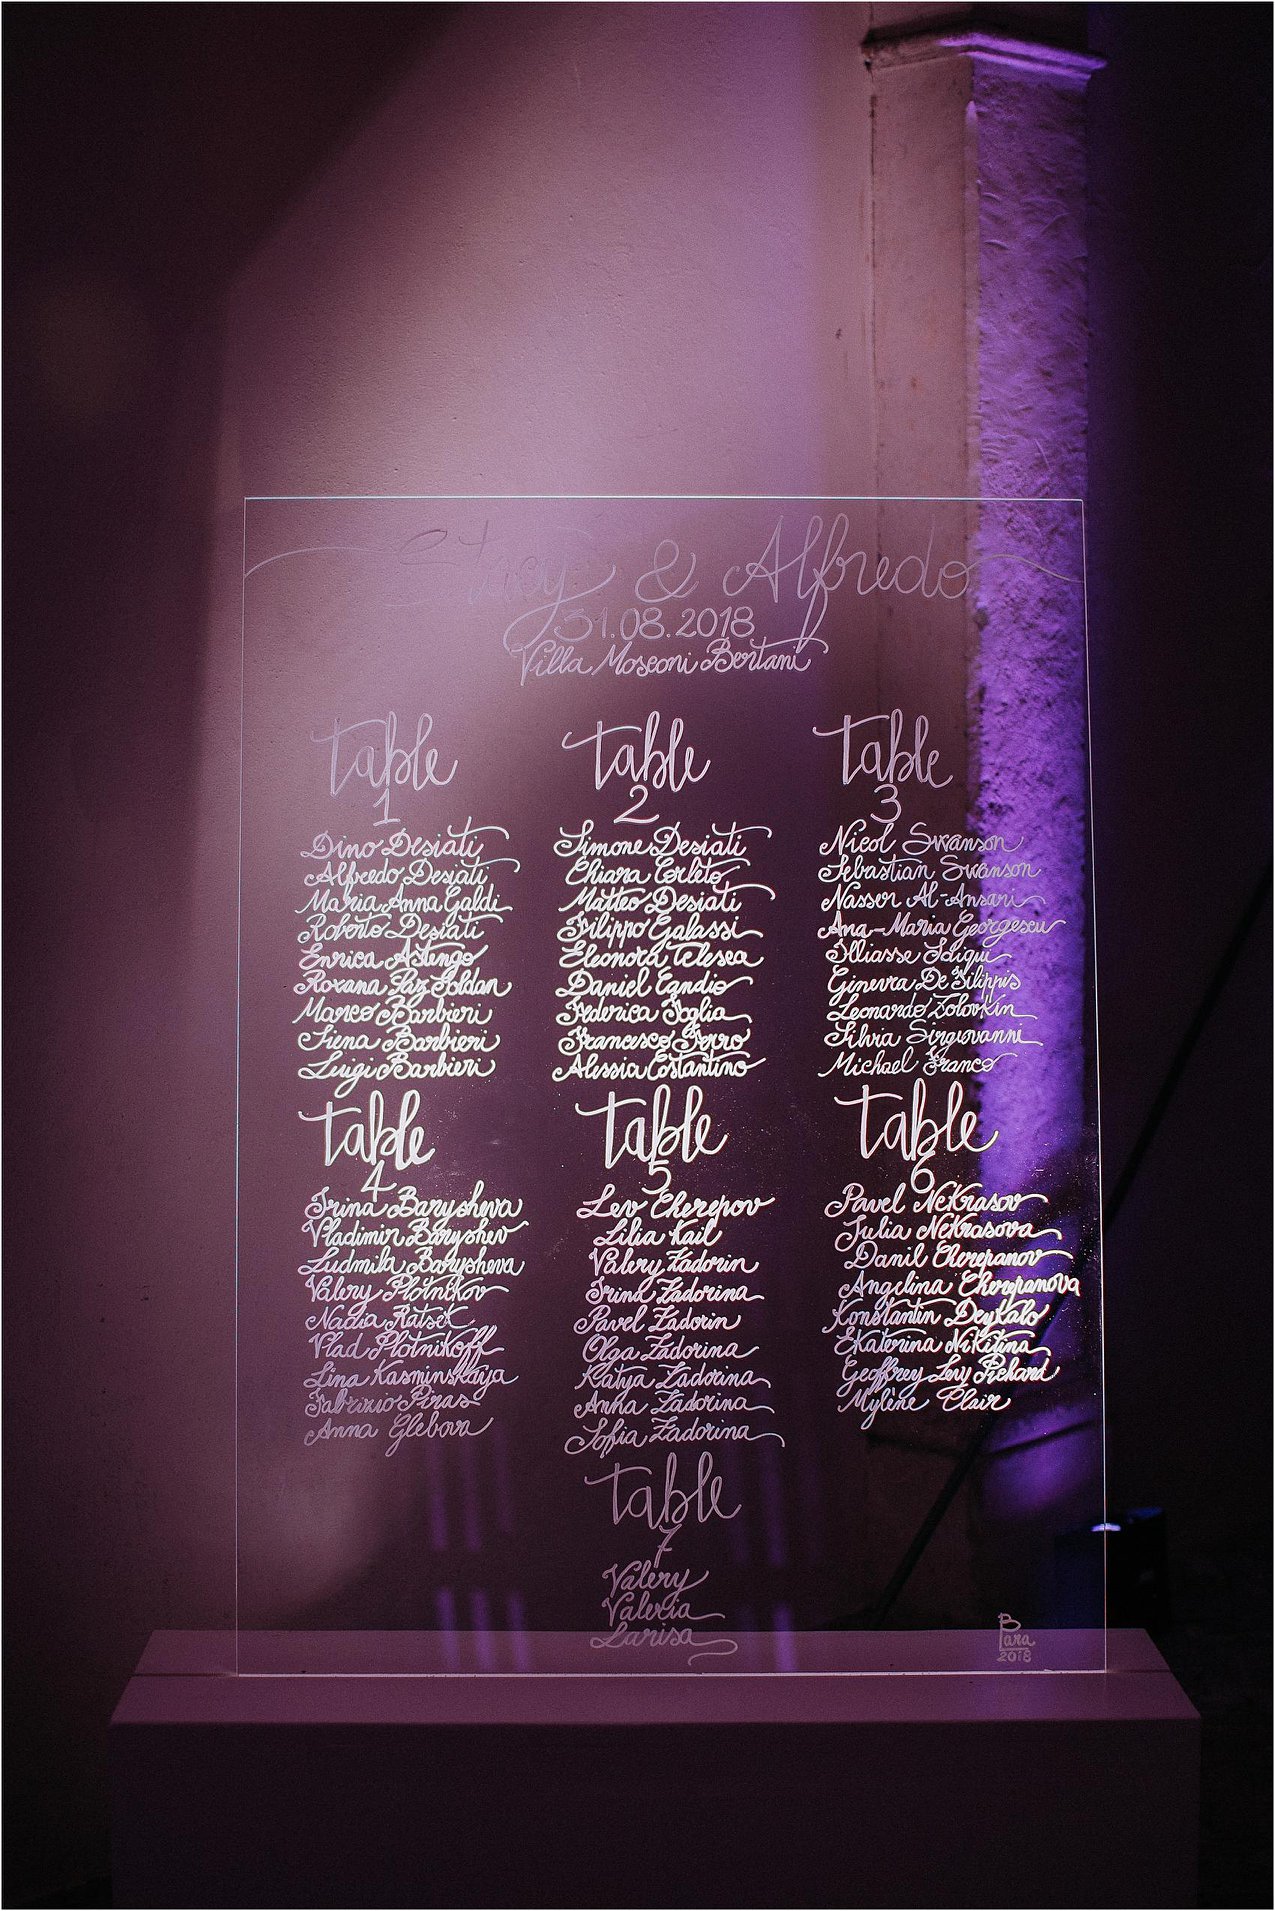 Stacy & Alfredo
31.08.2018
Villa Mosconi Bertani
table
1
Dino Desiati
Alfredo Desiati
Maria Anna Galdi
Roberto Desiati
Enrica Astengo
Roxana Paz Soldan
Marco Barbieri
Siena Barbieri
Luigi Barbieri
table
2
Simone Desiati
Chiara Corleto
Matteo Desiati
Filippo Galassi
Eleonora Telesca
Daniel Egndio
Federica Foglia
Francesco Ferro
Alessia Costantino
table
3
Nicol Swanson
Sebastian Swanson
Nasser Al-Ansari
Ana-Maria Georgescu
Illiasse Sdiqui
Ginevra De Filippis
Leonardo Zolovkin
Silvia Sirgiovanni
Michael Franco
table
4
Irina Barysheva
Vladimir Baryshev
Ludmila Barysheva
Valery Plotnikov
Nadia Ratsek
Vlad Plotnikoff
Lina Kasminskaya
Fabrizio Piras
Anna Glebova
table
5
Lev Cherepov
Lilia Kail
Valery Zadorin
Irina Zadorina
Pavel Zadorin
Olga Zadorina
Katya Zadorina
Anna Zadorina
Sofia Zadorina
table
6
Pavel Nekrasov
Julia Nekrasova
Danil Cherepanov
Angelina Cherepanova
Konstantin Deykalo
Ekaterina Nikitina
Geoffrey Levy Pichard
Mylène Clair
table
7
Valery
Valeria
Larisa
Bara
2018